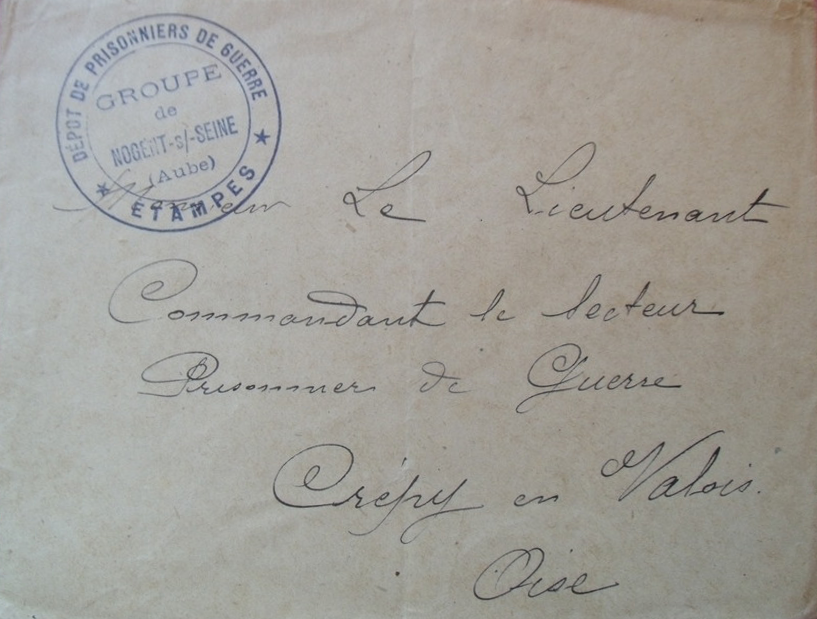 DÉPOT DE PRISONNIERS DE GUERRE
GROUPE
de
NOGENT-s/-SEINE
(Aube)
★ ETAMPES ★
Monsieur Le Lieutenant
Commandant le secteur
Prisonnier de Guerre
Crépy en Valois.
Oise